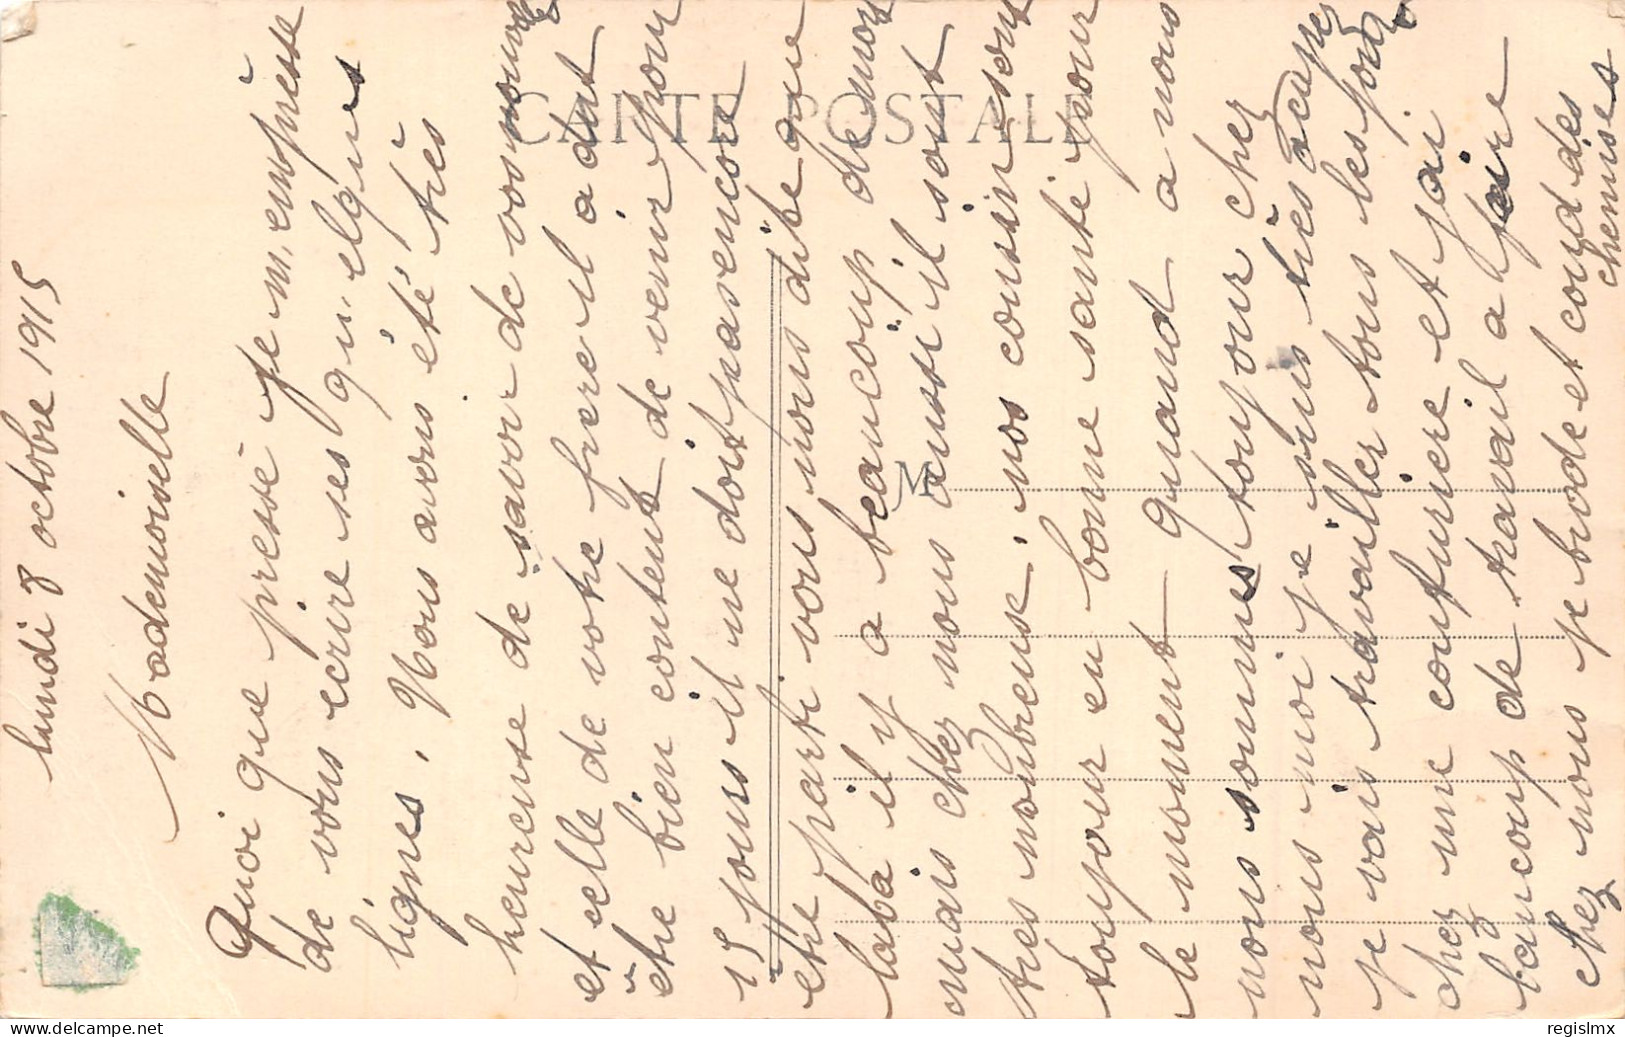 lundi 8 octobre 1915
Mademoiselle
Quoi que pressé je m'empresse
de vous écrire ses qu'elques
lignes. Nous avons été très
heureuse de savoir de vos nouvelle
et celle de votre frere il a dut
être bien content de venir pour
15 jours il ne doit pas encore
etre parti vous nous dite que
laba il y a beaucoup de mort
mais chez nous aussi il sont
tres nonbreuse, nos cousin sont
toujour en bonne santé pour
le moment quand a nous
nous sommes toujour chez
nous moi je suis très ocupée
je vais travailler tous les jour
chez une couturiere et j'ai
baucoup de travail a faire
chez nous je brode et coud des
chemises
CARTE POSTALE
M
www.delcampe.net
regislmx